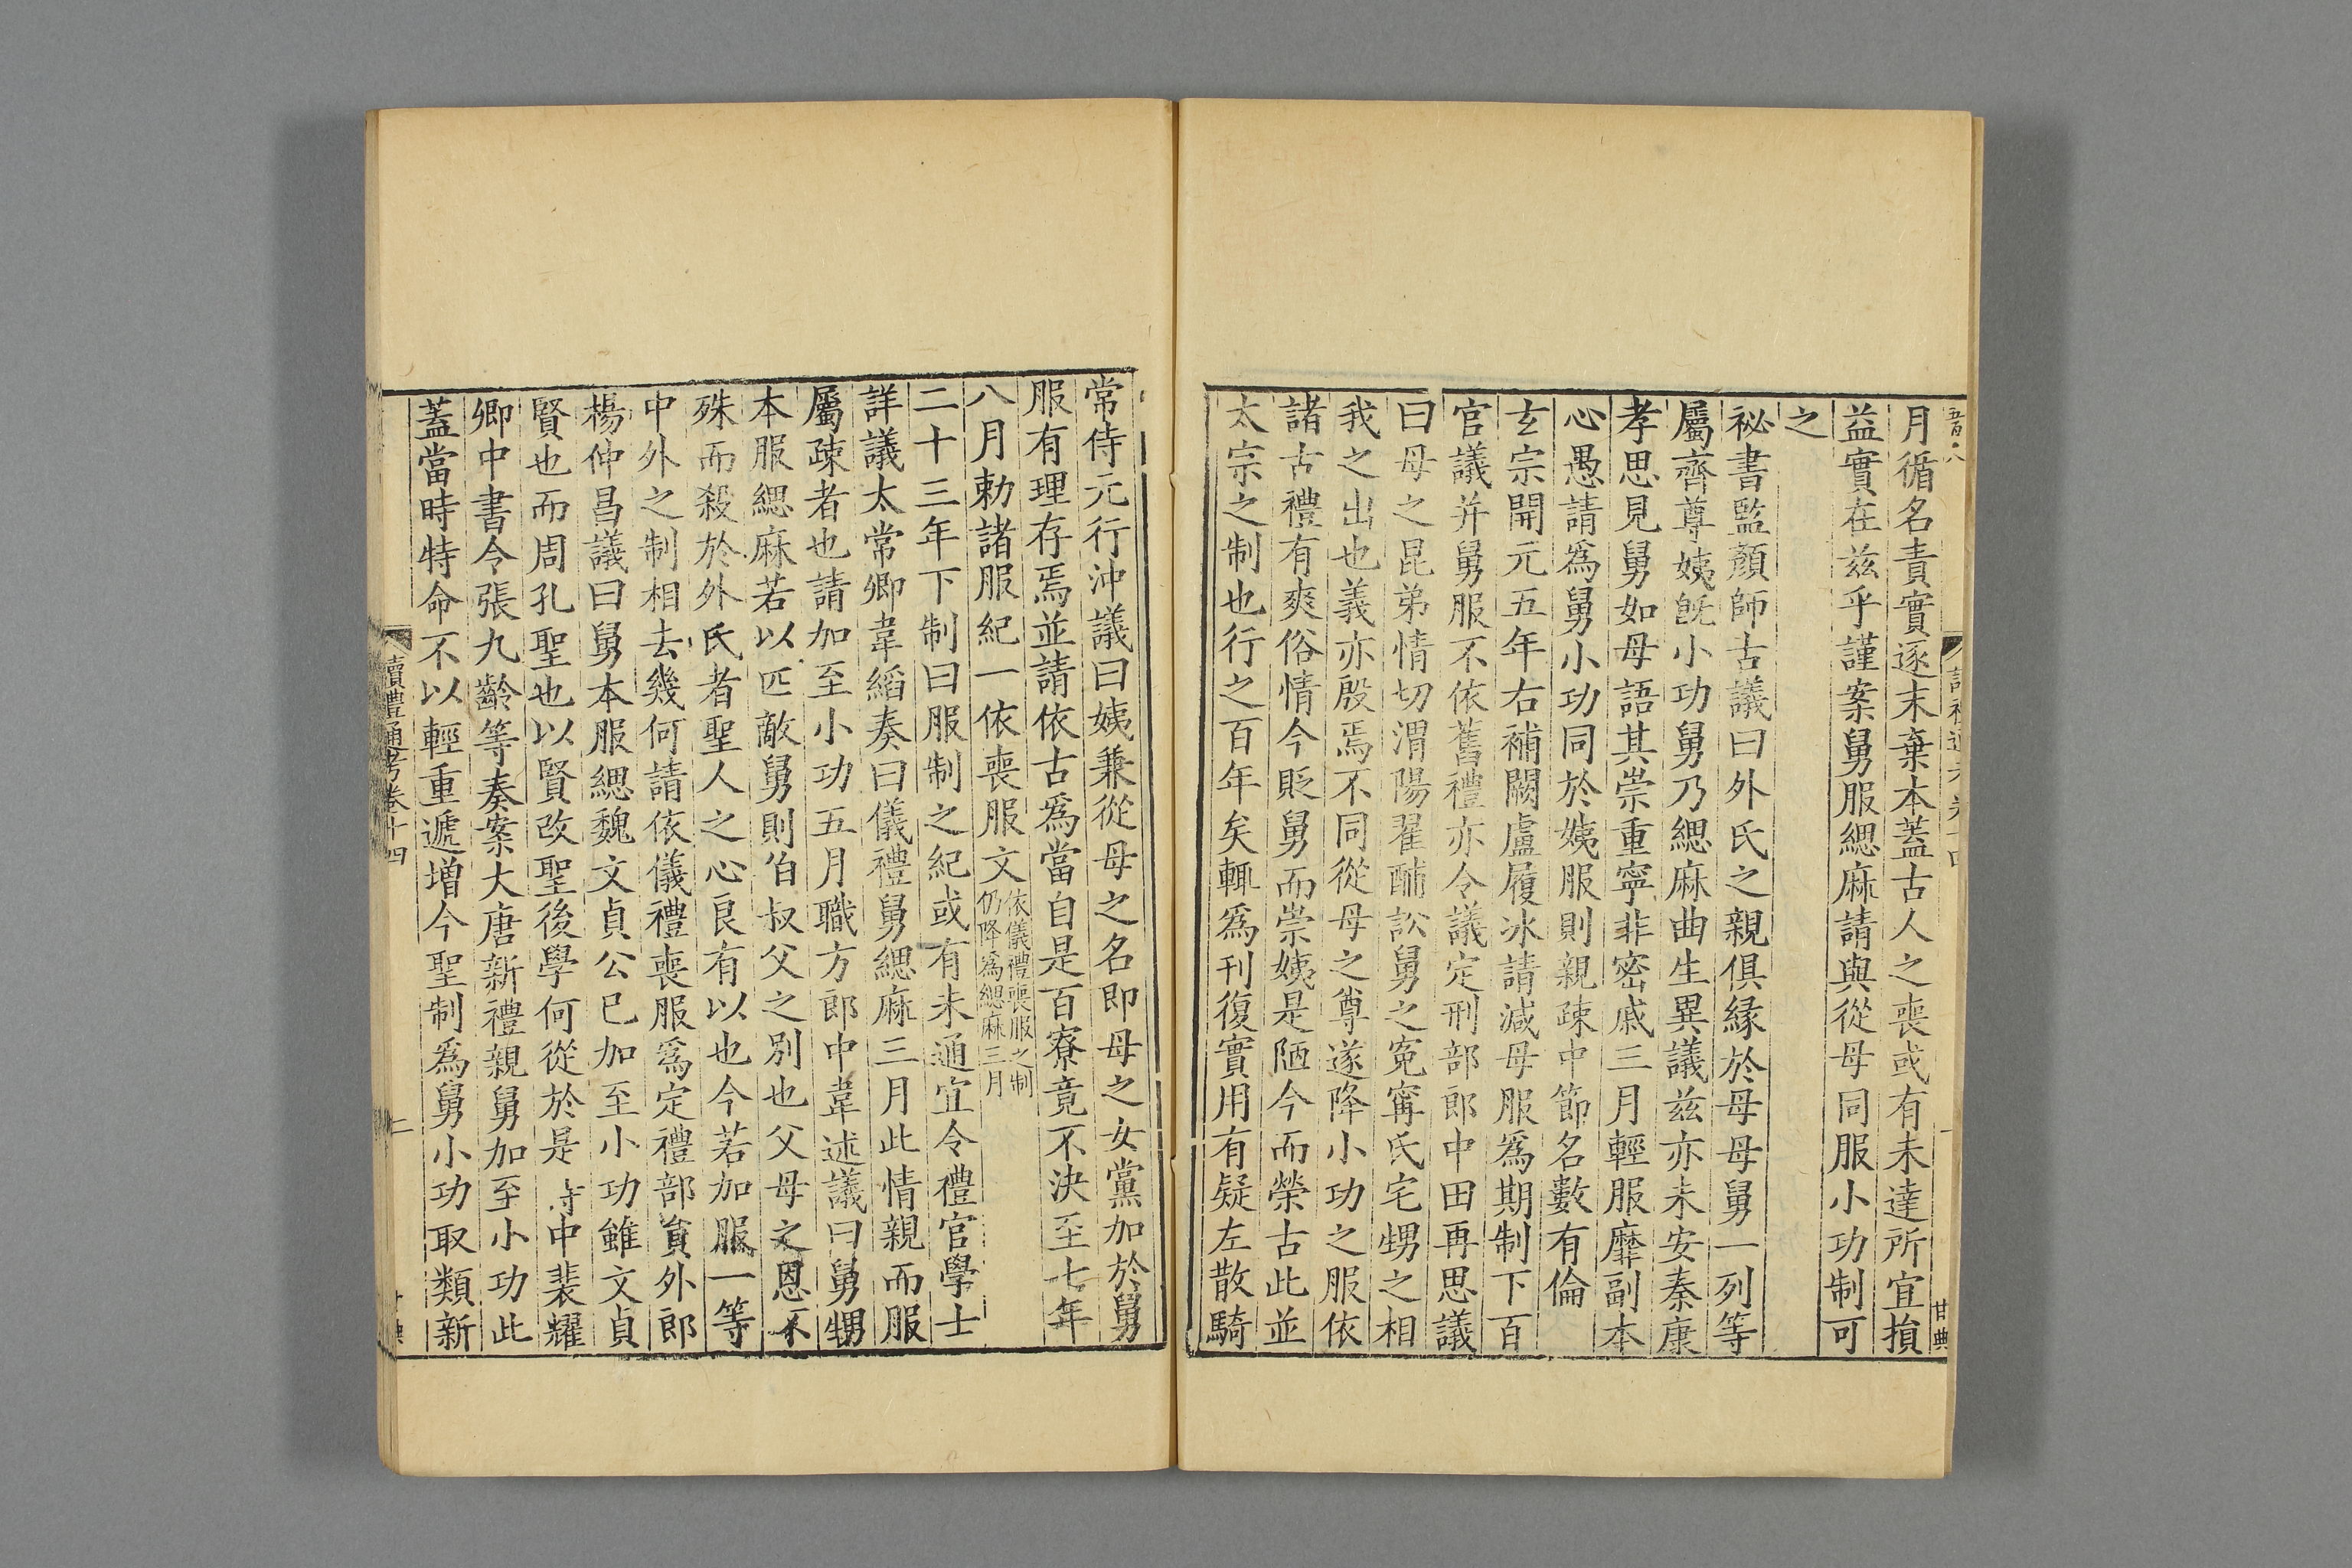 月循名責實逐末棄本蓋古人之喪或有未達所宜損
益實在兹乎謹案舅服緦麻請與從母同服小功制可
之
祕書監顏師古議曰外氏之親俱緣於母母舅一列等
屬齊尊姨旣小功舅乃緦麻曲生異議兹亦未安秦康
孝思見舅如母語其崇重寧非密戚三月輕服靡副本
心愚請爲舅小功同於姨服則親疎中節名數有倫
玄宗開元五年右補闕盧履冰請減母服爲期制下百
官議并舅服不依舊禮亦令議定刑部郎中田再思議
曰母之昆弟情切渭陽翟酺訟舅之寃甯氏宅甥之相
我之出也義亦殷焉不同從母之尊遂降小功之服依
諸古禮有爽俗情今貶舅而崇姨是陋今而榮古此並
太宗之制也行之百年矣輒爲刊復實用有疑左散騎
常侍元行沖議曰姨兼從母之名即母之女黨加於舅
服有理存焉並請依古爲當自是百寮竟不決至七年
八月勅諸服紀一依喪服文依儀禮喪服之制仍降爲緦麻三月
二十三年下制曰服制之紀或有未通宜令禮官學士
詳議太常卿韋縚奏曰儀禮舅緦麻三月此情親而服
屬疎者也請加至小功五月職方郎中韋述議曰舅甥
本服緦麻若以匹敵舅則伯叔父之別也父母之恩不
殊而殺於外氏者聖人之心良有以也今若加服一等
中外之制相去幾何請依儀禮喪服爲定禮部員外郎
楊仲昌議曰舅本服緦魏文貞公已加至小功雖文貞
賢也而周孔聖也以賢改聖後學何從於是侍中裴耀
卿中書令張九齡等奏案大唐新禮親舅加至小功此
蓋當時特命不以輕重遞增今聖制爲舅小功取類新
讀禮通考卷十四
二
甘典